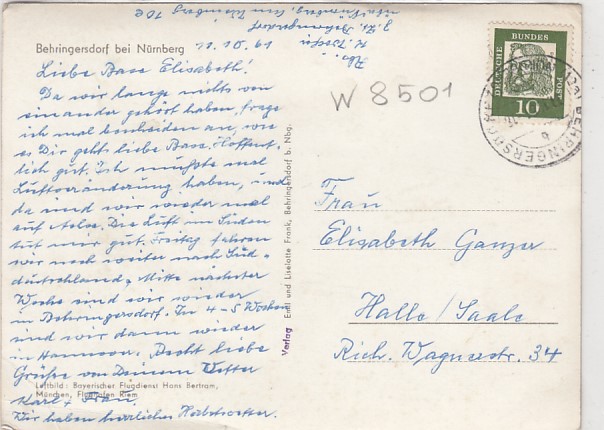 Behringersdorf bei Nürnberg
11.10.61
Liebe Base Elisabeth!
Da wir lange nichts von
einander gehört haben, frage
ich mal bescheiden an, wie
es Dir geht liebe Base. Hoffent-
lich gut. Ich mußte mal
Luftveränderung haben, und
da sind wir wieder mal
auf Achse. Die Luft im Süden
tut mir gut. Freitag fahren
wir noch weiter nach Süd-
deutschland. Mitte nächster
Woche sind wir wieder
in Behringersdorf. In 4-5 Wochen
sind wir dann wieder
in Hannover. Recht liebe
Grüße von Deinem Vetter
Karl + Frau.
Wir haben herrliches Herbstwetter.
Luftbild: Bayerischer Flugdienst Hans Bertram,
München, Flughafen Riem
Verlag Emil und Liselotte Frank, Behringersdorf b. Nbg.
Abs.:
z. Zt. Behringersdorf
Nürnberg 10e
W 8501
DEUTSCHE BUNDESPOST
10
BEHRINGERSDORF
b
Frau
Elisabeth Ganzer
Halle/Saale
Rich. Wagnerstr. 34